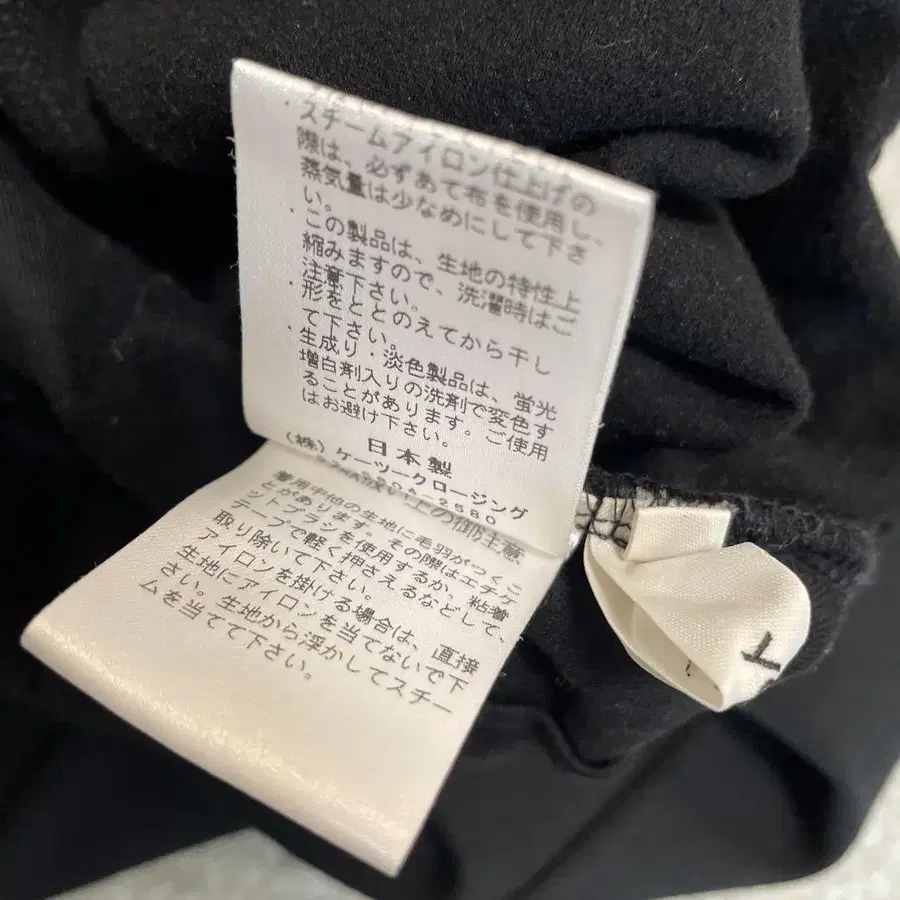 ・スチームアイロン仕上げの
際は、必ずあて布を使用し、
蒸気量は少なめにして下さ
い。
・この製品は、生地の特性上
縮みますので、洗濯時はご
注意下さい。
・形をととのえてから干し
て下さい。
・生成り・淡色製品は、蛍光
増白剤入りの洗剤で変色す
ることがあります。ご使用
はお避け下さい。
日本製
(株)ケーツークロージング
上の御注意
着用中他の生地に毛羽がつくこ
とがあります。その際はエチケ
ットブラシを使用するか、粘着
テープで軽く押さえるなどして、
取り除いて下さい。
アイロンを掛ける場合は、直接
生地にアイロンを当てないで下
さい。生地から浮かしてスチー
ムを当てて下さい。